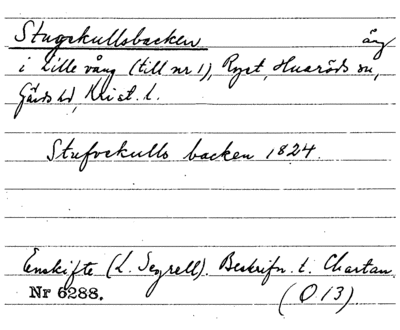 Stugekullsbacken äng
i Lille vång (till nr 1), Ryet, Huaröds sn,
Gärds hd, Krist. l.
Stufvekulls backen 1824.
Enskifte (L. Segrell). Beskrifn. t. Chartan
Nr 6288. (O 13).